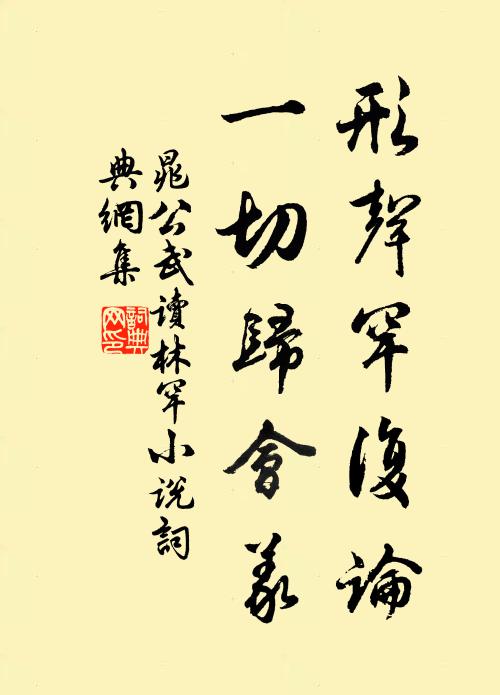 形聲罕復論
一切歸會義
晁公武讀林罕小說詞
典網集
詞典網印